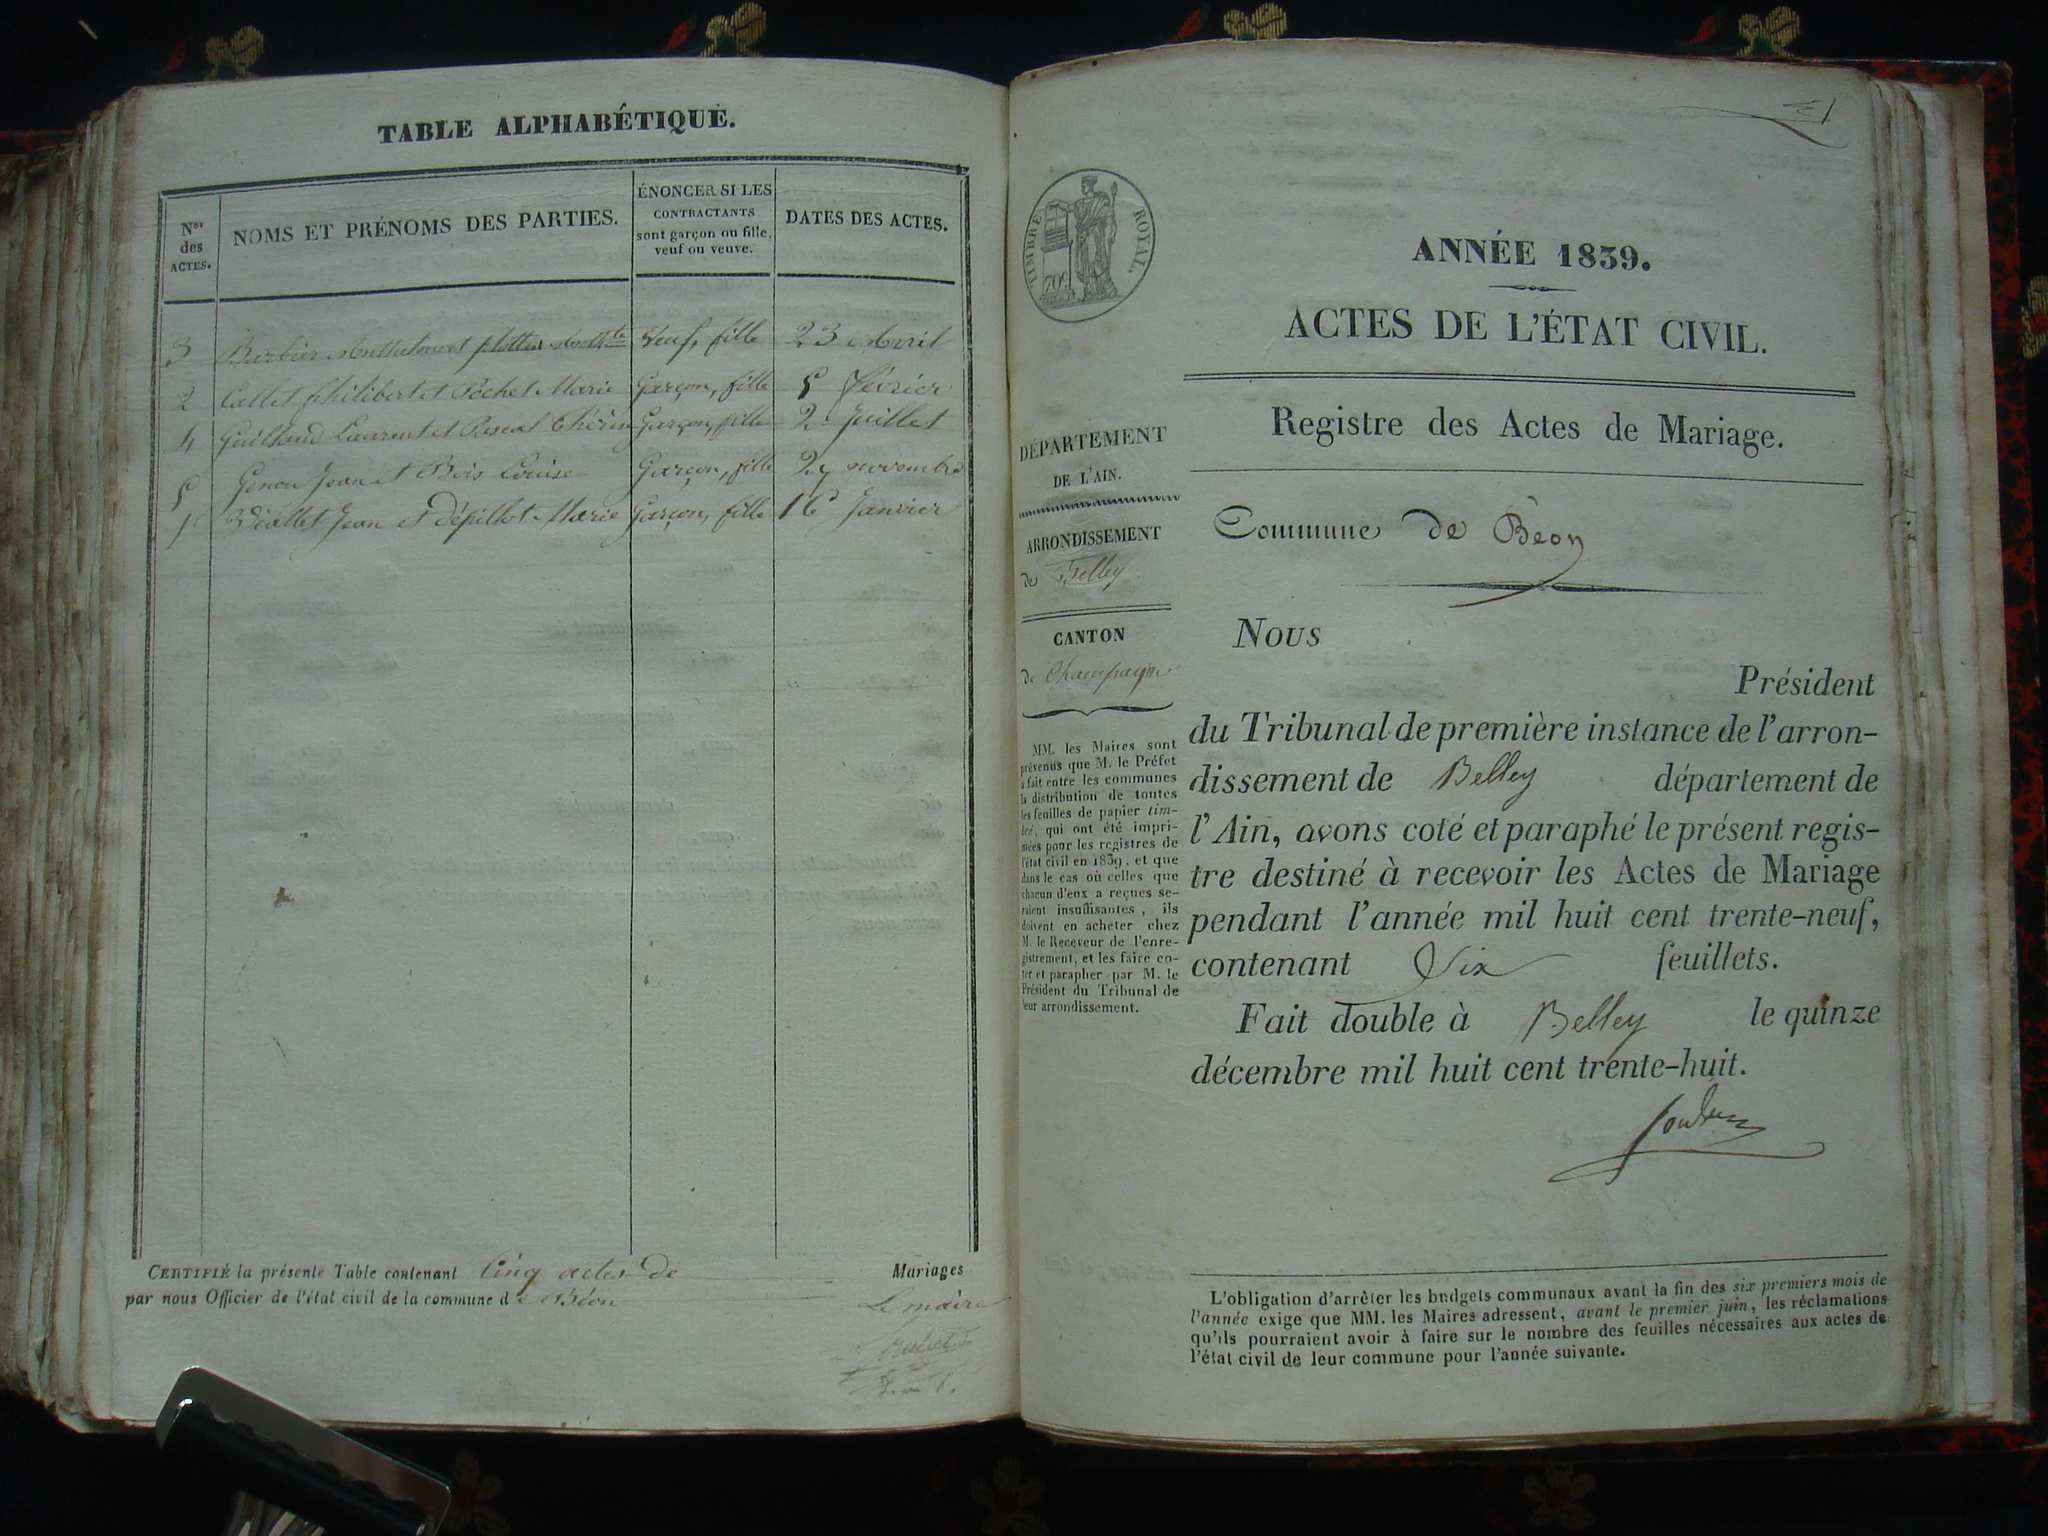 TABLE ALPHABÉTIQUE.
Nos des ACTES.
NOMS ET PRÉNOMS DES PARTIES.
ÉNONCER SI LES
CONTRACTANTS
sont garçon ou fille,
veuf ou veuve.
DATES DES ACTES.
3 Barbier et Veuf, fille 23 Avril
2 Callet philibert et Pochet Marie Garçon, fille 5 février
4 Guilland Laurent et Garçon, fille 2 Juillet
5 Genou Jean et Bois Louise Garçon, fille 27 novembre
1 Viallet Jean et Dépillot Marie Garçon, fille 16 Janvier
CERTIFIÉ la présente Table contenant Cinq actes de Mariages
par nous Officier de l'état civil de la commune de Béon
Le maire
1
TIMBRE ROYAL.
70c
ANNÉE 1839.
ACTES DE L'ÉTAT CIVIL.
Registre des Actes de Mariage.
Commune de Béon
DÉPARTEMENT
DE L'AIN.
ARRONDISSEMENT
de Belley
CANTON
de Champagne
MM. les Maires sont
prévenus que M. le Préfet
a fait entre les communes
la distribution de toutes
les feuilles de papier tim-
bré, qui ont été impri-
mées pour les registres de
l'état civil en 1839, et que
dans le cas où celles que
chacun d'eux a reçues se-
raient insuffisantes, ils
doivent en acheter chez
M. le Receveur de l'enre-
gistrement, et les faire co-
ter et parapher par M. le
Président du Tribunal de
leur arrondissement.
Nous
Président
du Tribunal de première instance de l'arron-
dissement de Belley département de
l'Ain, avons coté et paraphé le présent regis-
tre destiné à recevoir les Actes de Mariage
pendant l'année mil huit cent trente-neuf,
contenant Six feuillets.
Fait double à Belley le quinze
décembre mil huit cent trente-huit.
L'obligation d'arrêter les budgets communaux avant la fin des six premiers mois de
l'année exige que MM. les Maires adressent, avant le premier juin, les réclamations
qu'ils pourraient avoir à faire sur le nombre des feuilles nécessaires aux actes de
l'état civil de leur commune pour l'année suivante.